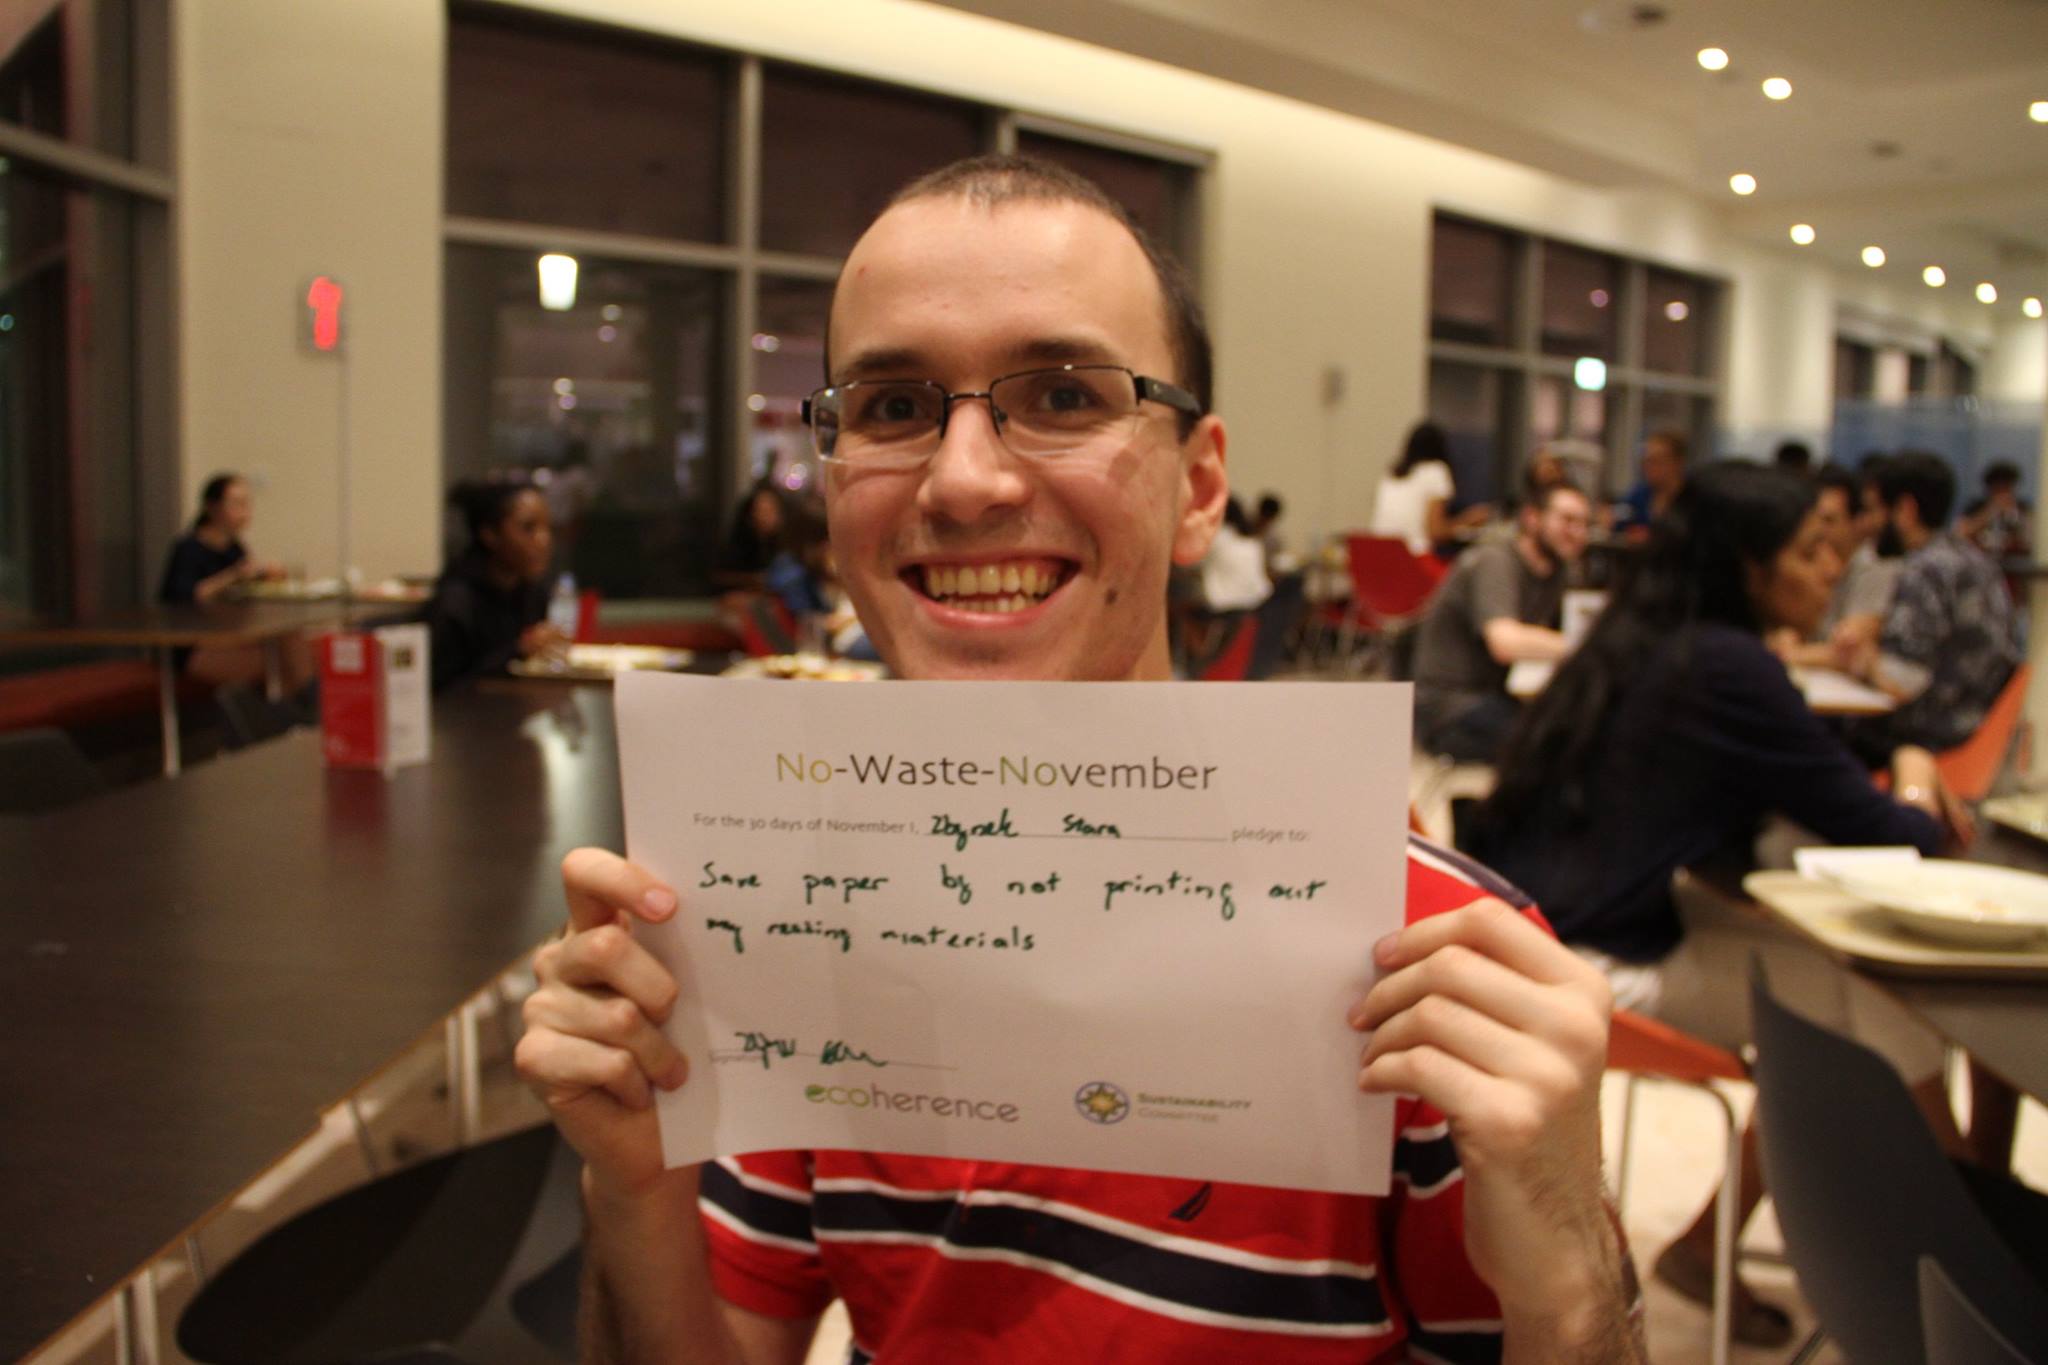 No-Waste-November
For the 30 days of November I, Zbynek Stara pledge to:
Save paper by not printing out
my reading materials
Signature
ecoherence
SUSTAINABILITY
COMMITTEE
1